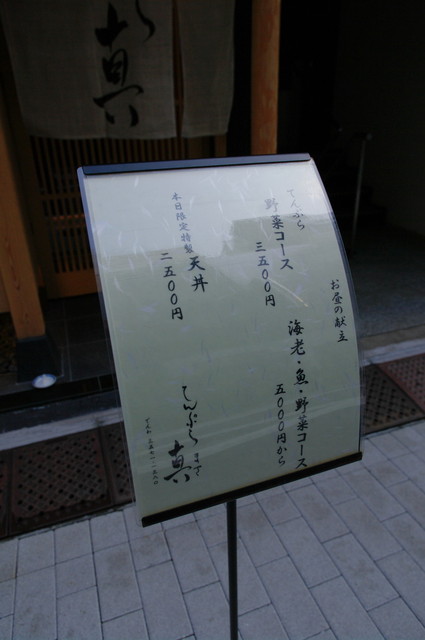 真
お昼の献立
てんぷら
野菜コース
三五〇〇円
海老・魚・野菜コース
五〇〇〇円から
本日限定特製 天丼
二五〇〇円
てんぷら
真